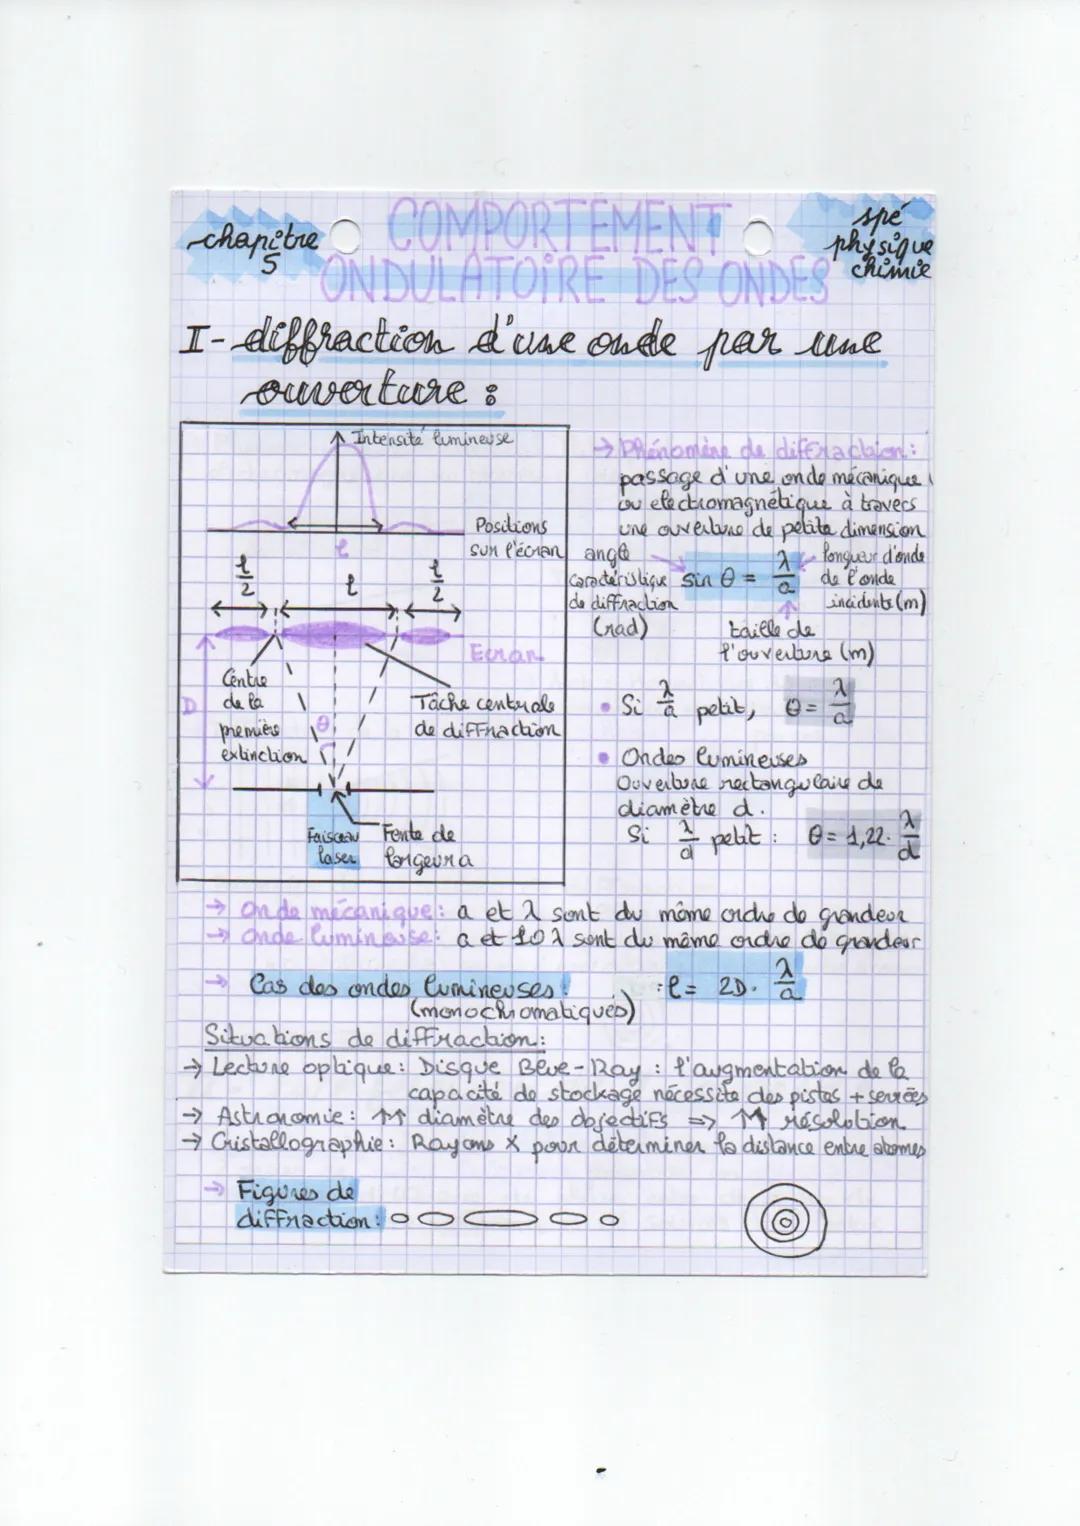 chapitre 5
COMPORTEMENT
ONDULATOIRE DES ONDES
spé
physique
chimie
I- diffraction d'une onde par une
ouverture :
Intensité lumineuse
Positions
sur l'écran
l
l/2
l
l/2
Ecran
Centre
de la
première
extinction
D
θ
Tâche centrale
de diffraction
Faisceau
laser
Fente de
largeur a
→ Phénomène de diffraction :
passage d'une onde mécanique
ou électromagnétique à travers
une ouverture de petite dimension
angle
caractéristique
de diffraction
(rad)
sin θ = λ/a
longueur d'onde
de l'onde
incidente (m)
taille de
l'ouverture (m)
• Si λ/a petit, θ = λ/a
• Ondes lumineuses
Ouverture rectangulaire de
diamètre d.
Si λ/d petit : θ = 1,22. λ/d
→ Onde mécanique : a et λ sont du même ordre de grandeur
→ Onde lumineuse : a et 10 λ sont du même ordre de grandeur
→ Cas des ondes lumineuses : l = 2D. λ/a
(monochromatiques)
Situations de diffraction :
→ Lecture optique : Disque Blue-Ray : l'augmentation de la
capacité de stockage nécessite des pistes + serrées
→ Astronomie : ↑↑ diamètre des objectifs => ↑↑ résolution
→ Cristallographie : Rayons X pour déterminer la distance entre atomes
→ Figures de
diffraction :